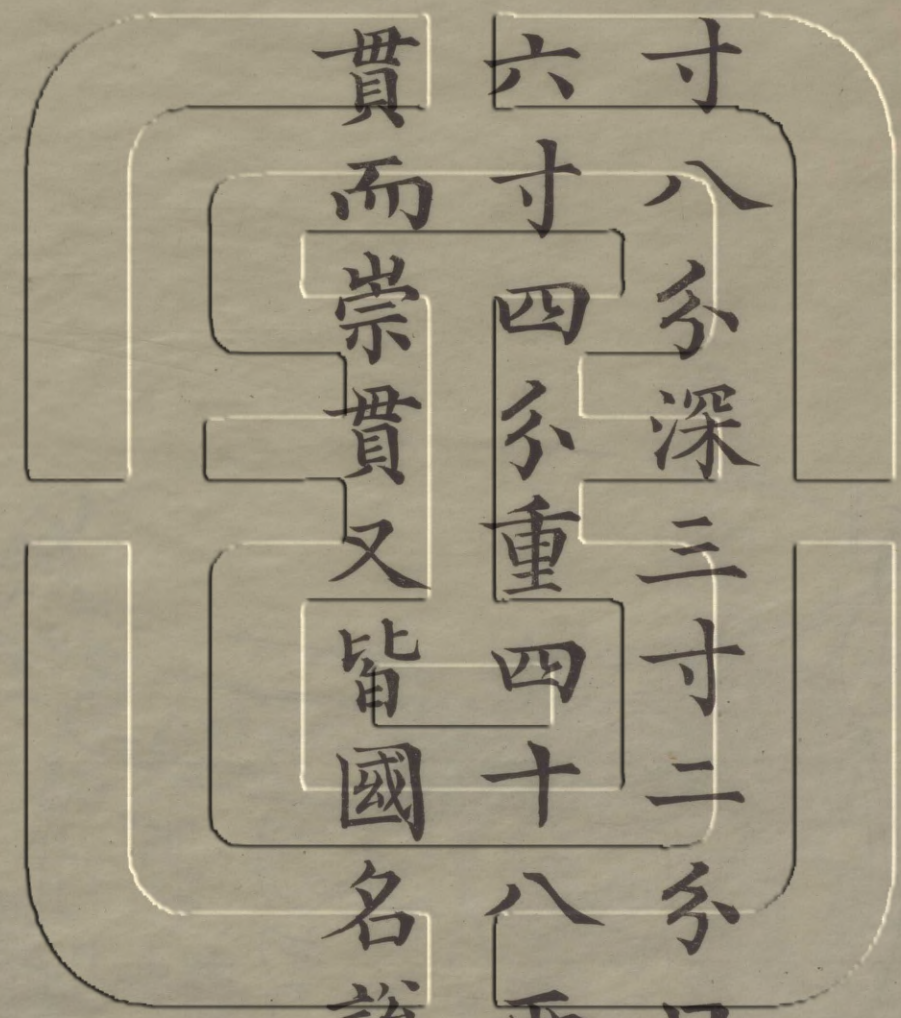 寸八分深三寸二分
六寸四分重四十八
貫而崇貫又皆國名